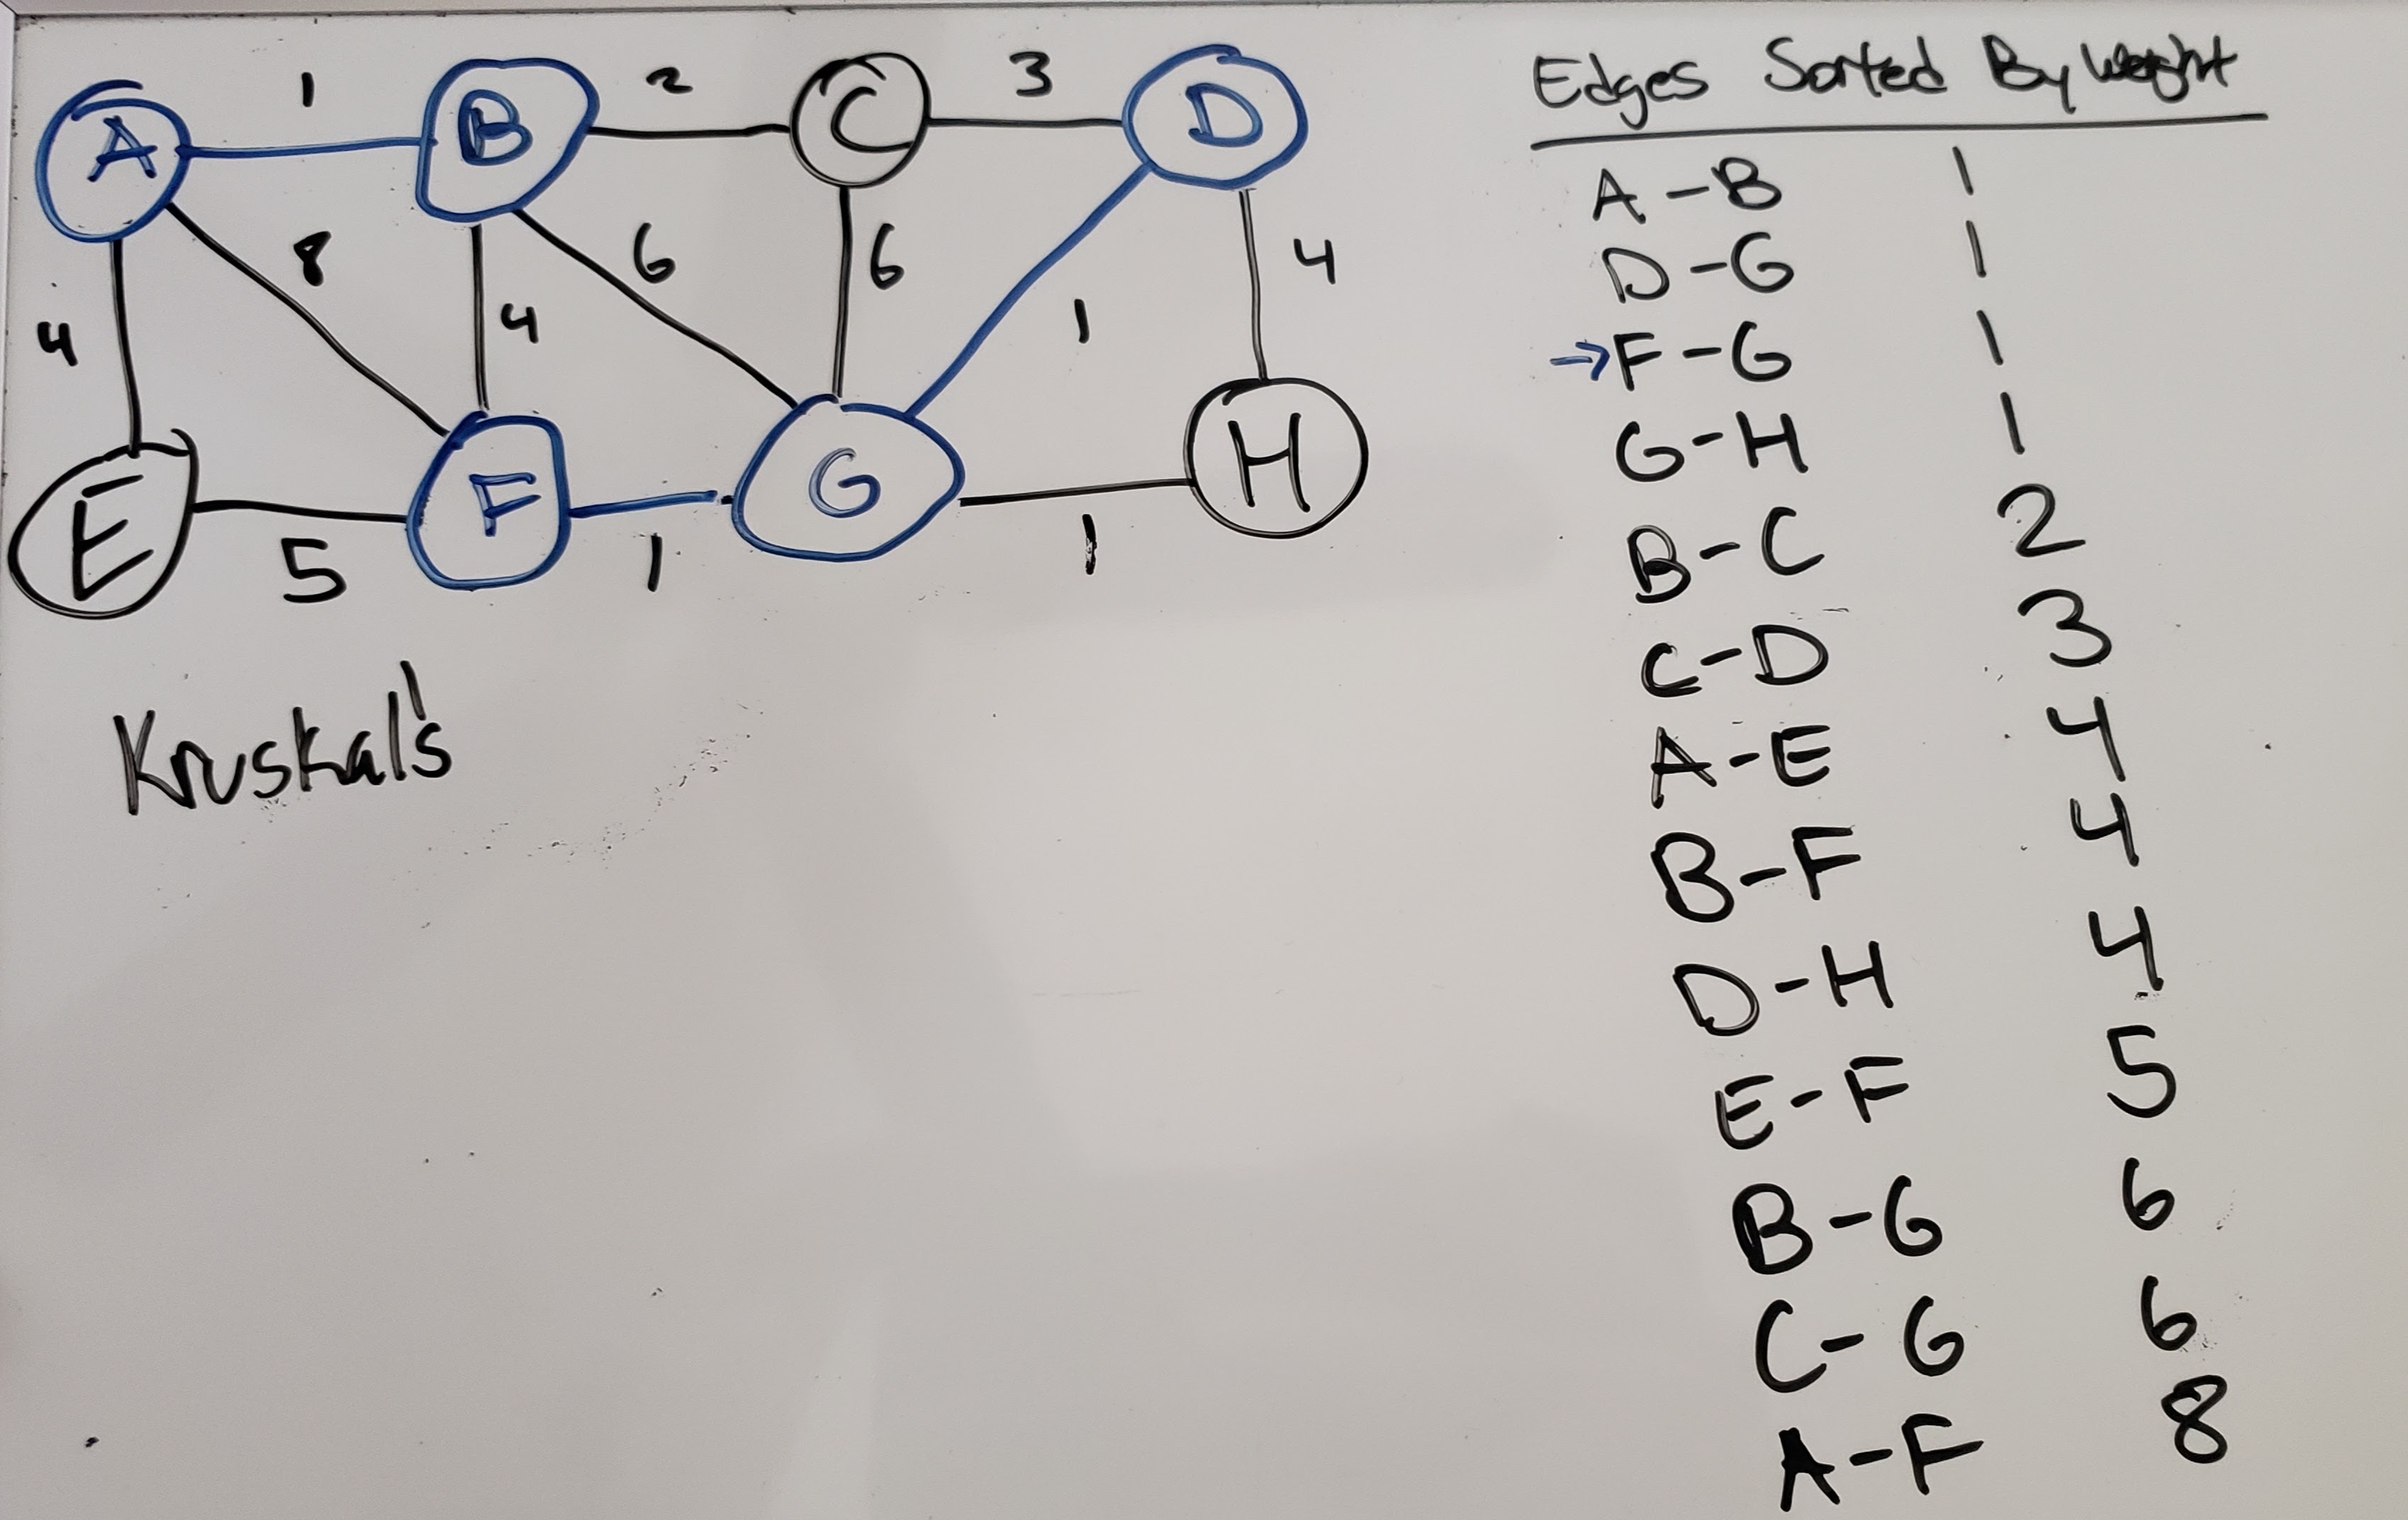 1 2 3
A B C D
8 6 6 4
4 4 1
E F G H
5 1 1
Kruskal's
Edges Sorted By Weight
A - B 1
D - G 1
→ F - G 1
G - H 1
B - C 2
C - D 3
A - E 4
B - F 4
D - H 4
E - F 5
B - G 6
C - G 6
A - F 8